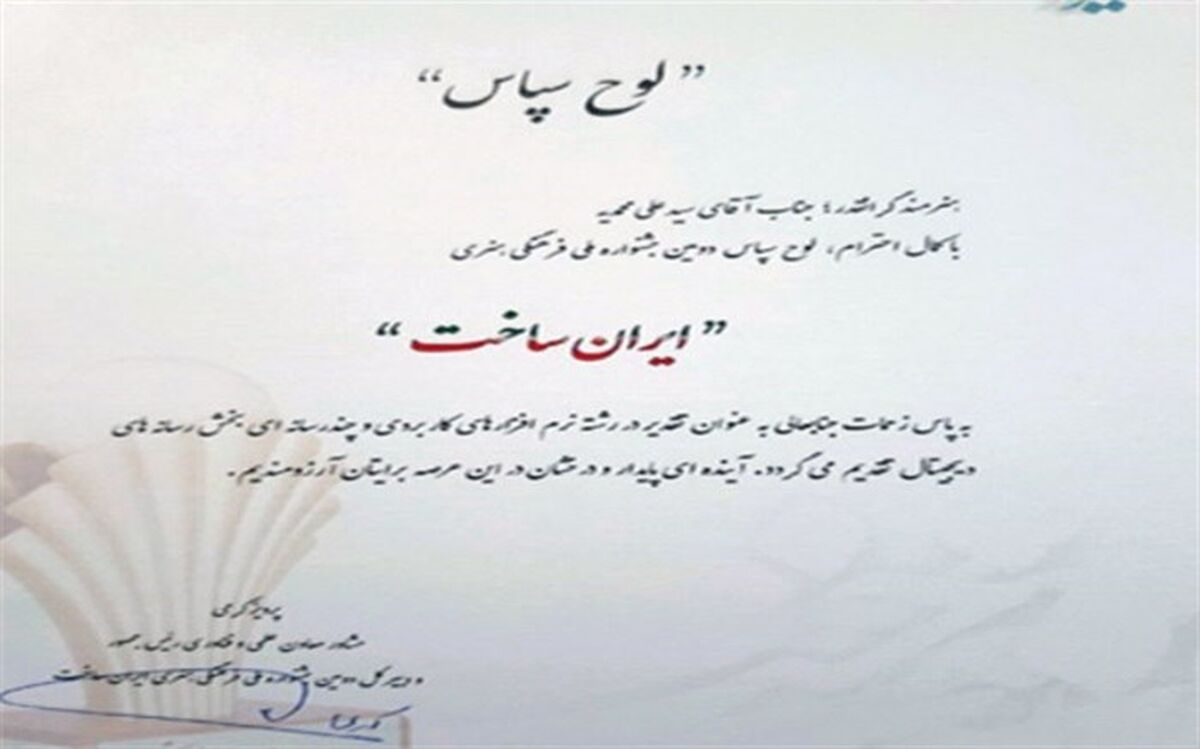 ” لوح سپاس “
هنرمند گرانقدر؛ جناب آقای سید علی محمدیه
با کمال احترام، لوح سپاس دومین جشنواره ملی فرهنگی هنری
” ایران ساخت “
به پاس زحمات جنابعالی به عنوان تقدیر در رشته نرم افزارهای کاربردی و چندرسانه ای بخش رسانه های
دیجیتال تقدیم می گردد. آینده ای پایدار و درخشان در این عرصه برایتان آرزومندیم.
پرویز کرمی
مشاور معاون علمی و فناوری رئیس جمهور
و دبیر کل دومین جشنواره ملی فرهنگی هنری ایران ساخت